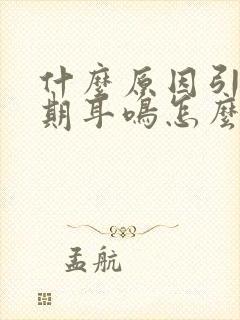 什麼原因引
期耳鳴怎麼
孟航